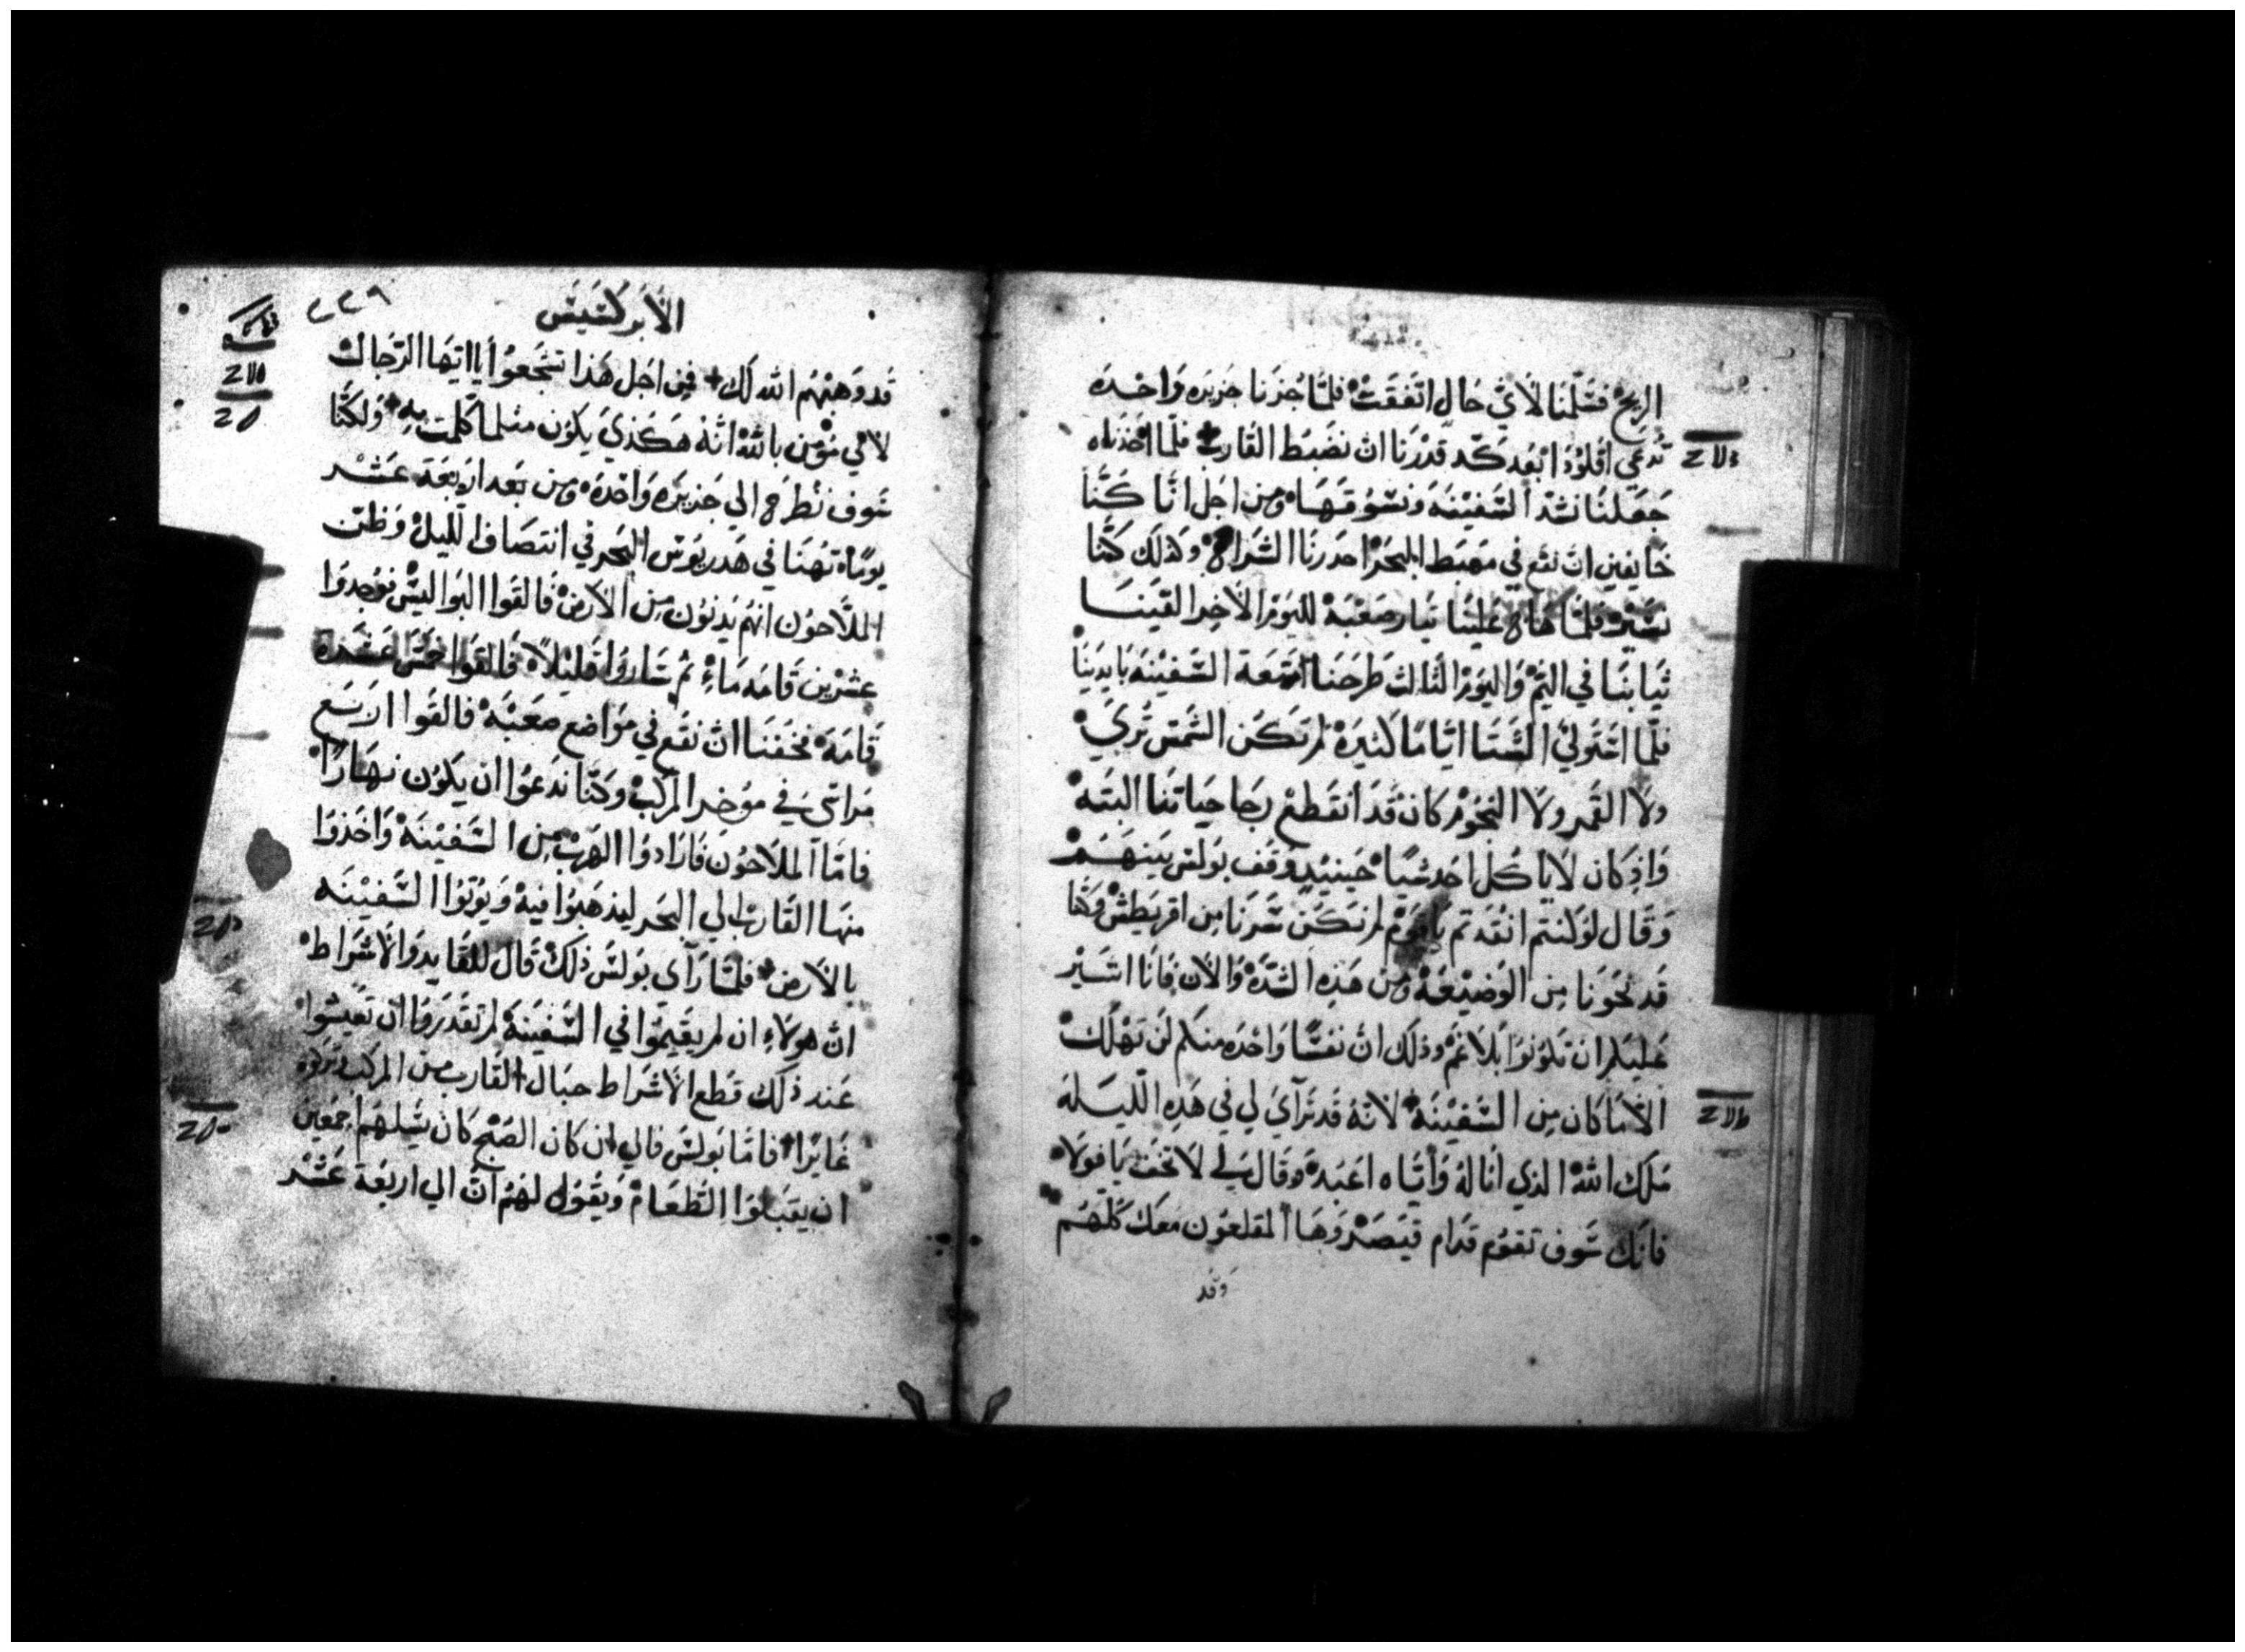 الريح فسلمنا لاي حال اتفقت فلما جزنا جزيره واحده
تدعي اقلوده ابعد كد قدرنا ان نضبط القارب فلما اخذناه
جعلنا نشد السفينه ونسوقها ومن اجل انا كنا
خايفين ان نقع في مهبط البحر احدرنا الشراع وكذلك كنا
نسير فلما هاج علينا تيار صعبة لليوم الاخر القينا
ثيابنا في اليم واليوم الثالث طرحنا امتعة السفينه بايدينا
فلما استولي الشتا اياما كثيرة لم تكن الشمس تري
ولا القمر ولا النجوم كان قد انقطع رجا حياتنا البته
واذ كان لا ياكل احد شيا حينيد وقف بولس بينهم
وقال لو كنتم انقدتم يا قوم لم نكن سرنا من اقريطش وكنا
قد نجونا من الوضيعة ومن هذه الشدة والان فانا اشير
عليكم ان تكونوا بلا غم وذلك ان نفسا واحده منكم لن تهلك
الا ما كان من السفينة لانه قد ترآي لي في هذه الليلة
ملك الله الذي انا له واياه اعبد وقال لي لا تخف يا فولا
فانك سوف تقوم قدام قيصر وها المقلعون معك كلهم
وقد
٢٢٩
الابركسيس
قد وهبهم الله لك فمن اجل هذا تشجعوا يا ايها الرجال
لاني مؤمن بالله انه هكذي يكون مثلما كلمت به ولكنا
سوف نطرح الي جزيره واحده ومن بعد اربعة عشر
يوما تهنا في هدريوس البحر في انتصاف الليل وظن
الملاحون انهم يدنون من الارض فالقوا البواليس فوجدوا
عشرين قامه ماء ثم ساروا قليلا فالقوا خمس عشره
قامة فخفنا ان نقع في مواضع صعبه فالقوا اربع
مراسي في موخر المركب وكنا ندعوا ان يكون نهارا
فاما الملاحون فارادوا الهرب من السفينة واخذوا
منها القارب الي البحر ليذهبوا فيه ويوثوا السفينه
بالارض فلما رآي بولس ذلك قال للقايد والاشراط
ان هولاء ان لم يقيموا في السفينة لم تقدروا ان تعيشوا
عند ذلك قطع الاشراط حبال القارب من المركب وتركوه
غايرا فاما بولس فالي ان كان الصبح كان يسلهم اجمعين
ان يقبلوا الطعام ويقول لهم ان الي اربعة عشر